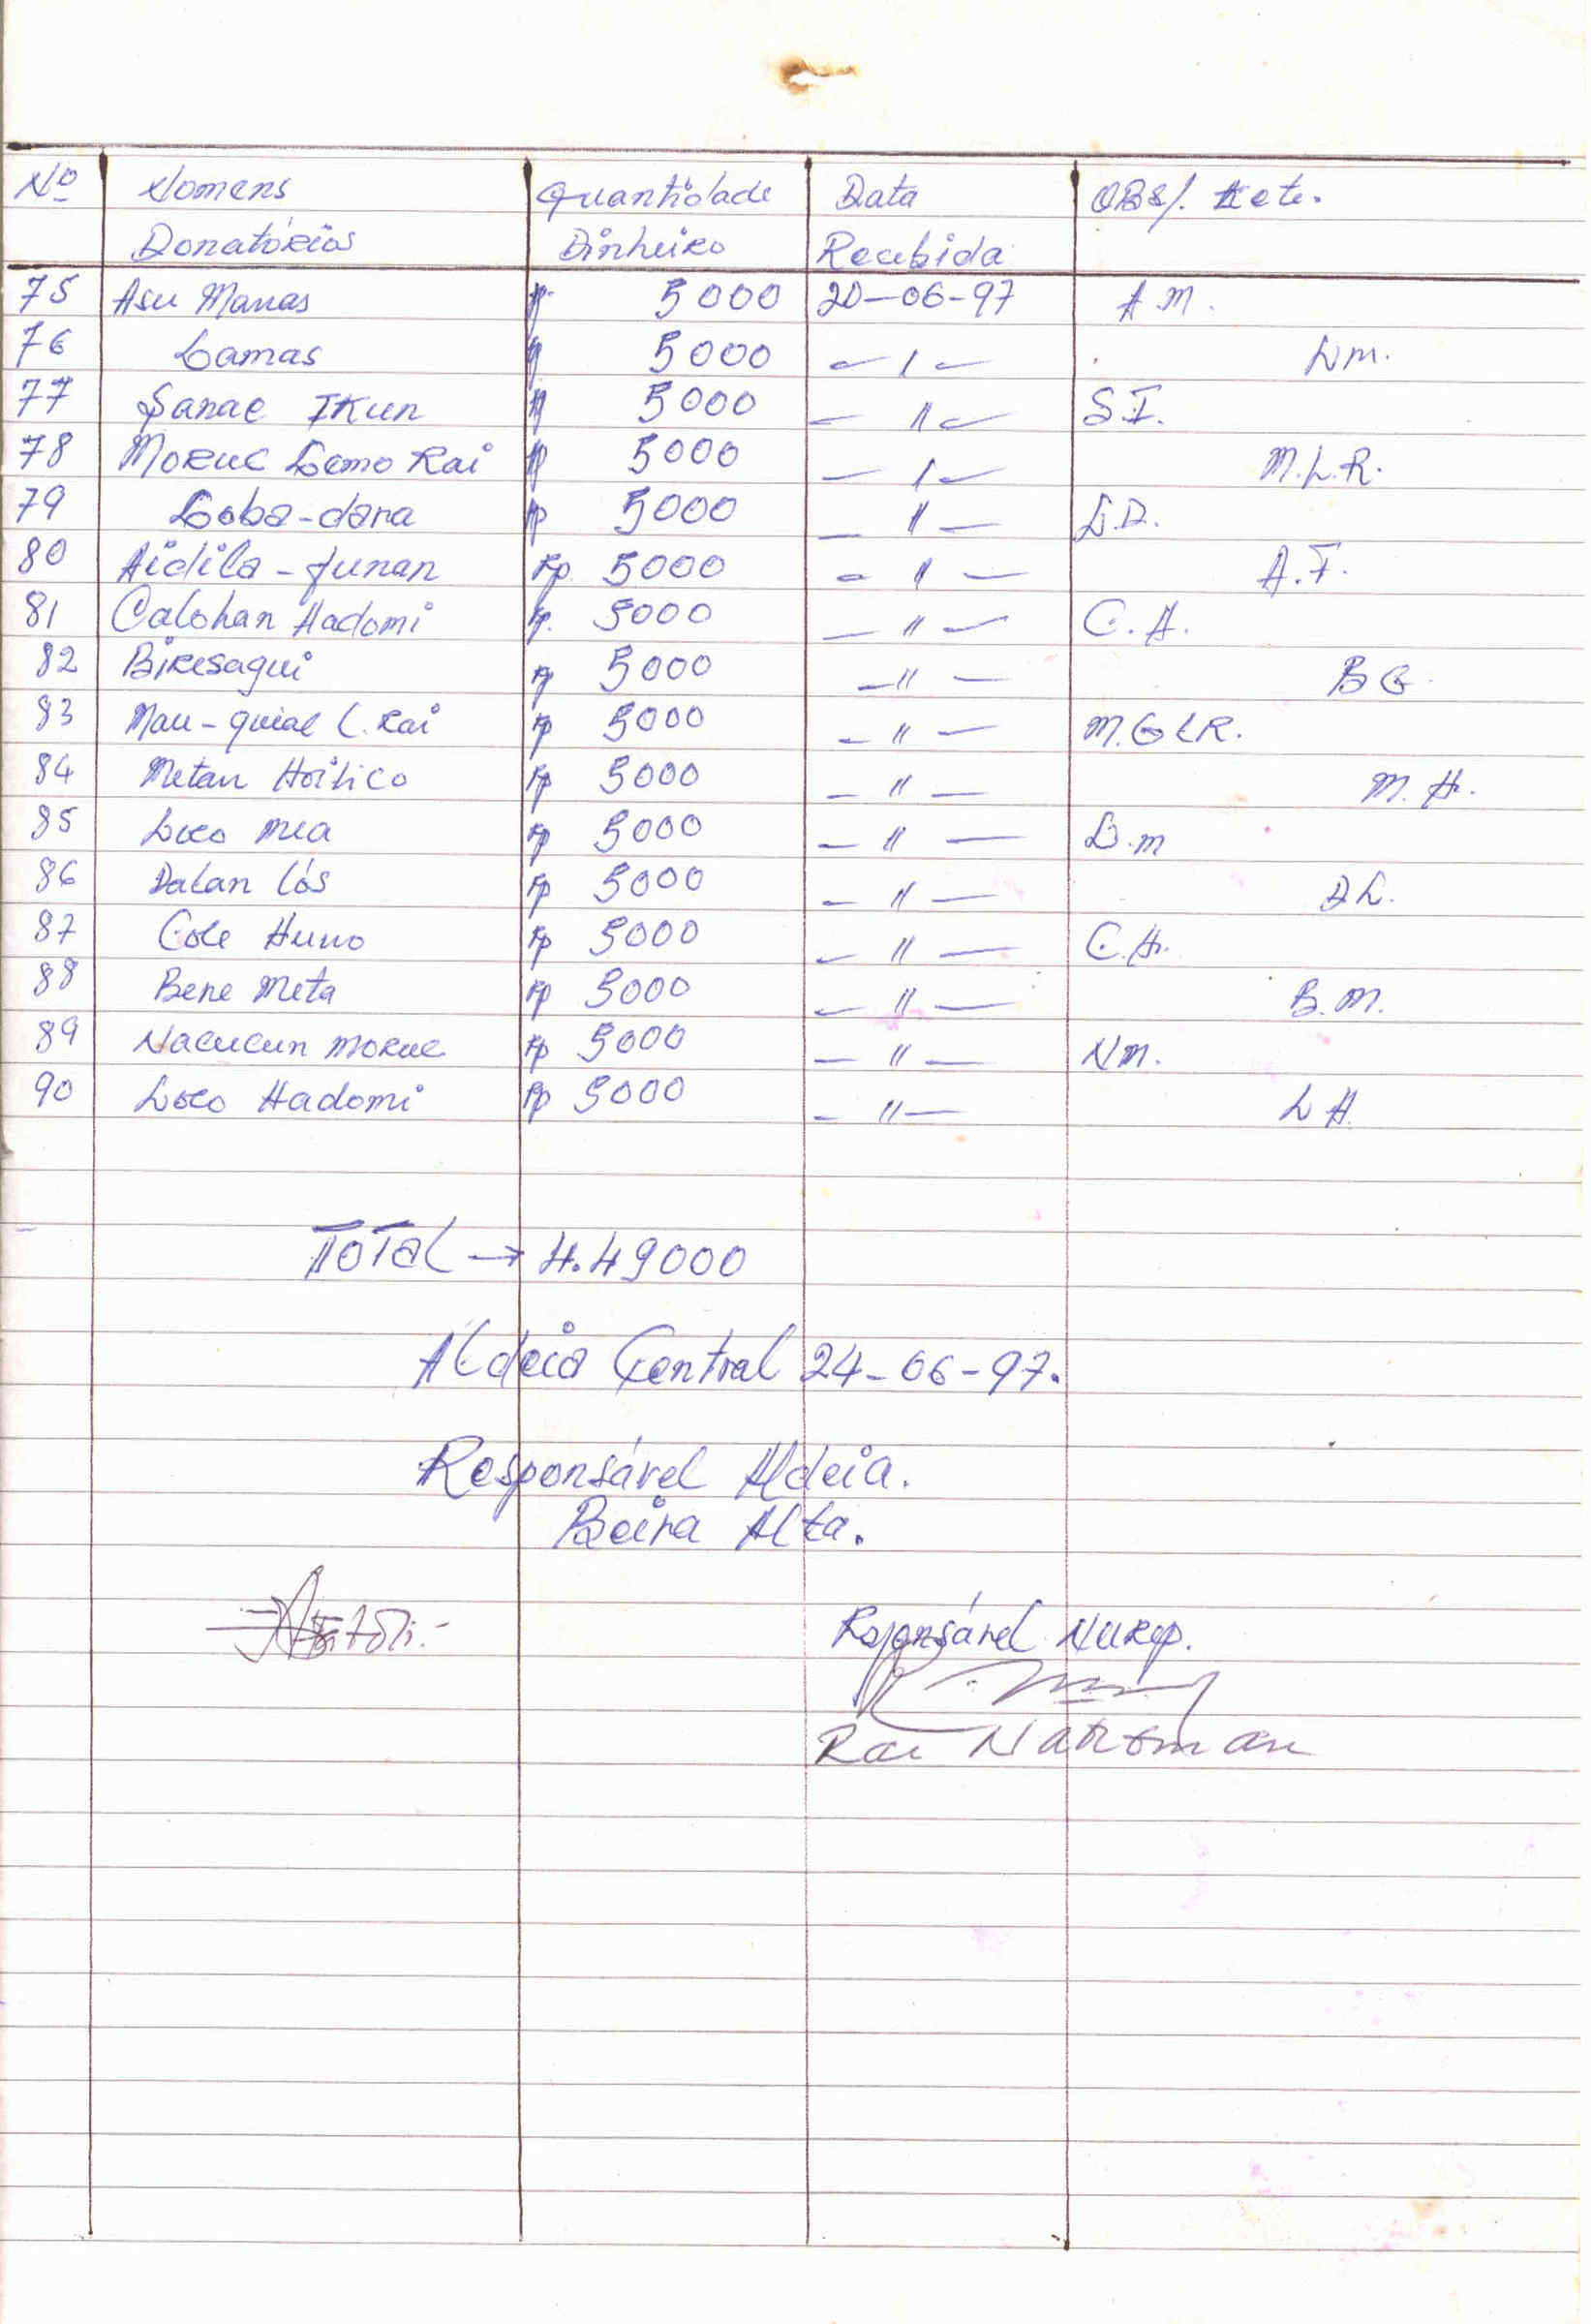 Nº Nomens Quantidade Data OBS/.
Donatórios Dinheiro Recebida
75 Asu Manas Rp 5000 20-06-97 A M.
76 Lamas Rp 5000 - " - L m.
77 Sanae Ikun Rp 5000 - " - S I.
78 Moruc Lemo Rai Rp 5000 - " - M.L.R.
79 Loba-dara Rp 5000 - " - L.D.
80 Aidila-funan Rp. 5000 - " - A.F.
81 Calohan Hadomi Rp. 5000 - " - C.H.
82 Biresagui Rp 5000 - " - B G.
83 Mau-quial L. Rai Rp 5000 - " - M.G L R.
84 Metan Hoitico Rp 5000 - " - M. H.
85 Loco Mea Rp 5000 - " - L.m
86 Dalan Lós Rp 5000 - " - D L.
87 Cole Huno Rp 5000 - " - C.H.
88 Bene Meta Rp 5000 - " - B.M.
89 Nacucun Moruc Rp 5000 - " - N m.
90 Loco Hadomi Rp 5000 - " - L H.
Total → 4.49000
Aldeia Central 24-06-97.
Responsável Aldeia.
Beira Alta.
Rsponsável Nurep.
Rai Nakroman